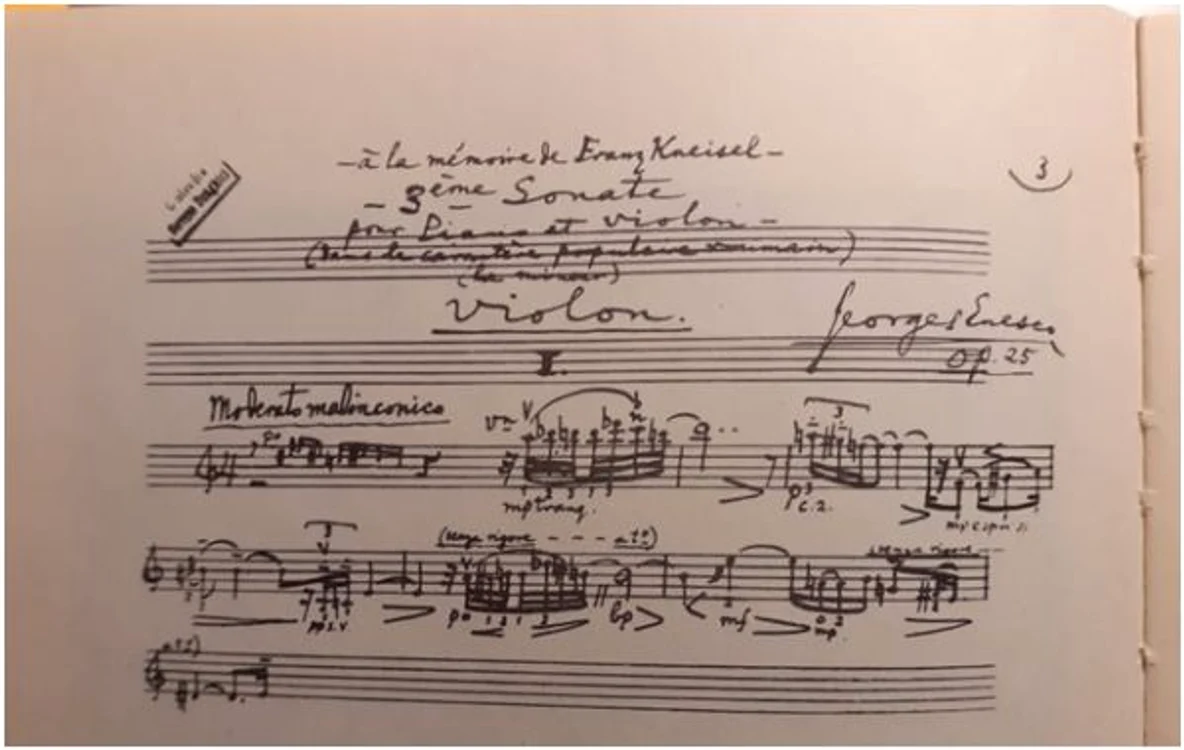 – à la mémoire de Franz Kneisel –
3
– 3ème Sonate –
pour Piano et violon –
(dans le caractère populaire roumain)
(la mineur)
Violon.
Georges Enesco
Op. 25
I.
Moderato malinconico
mp tranq.
3
p
(senza rigore - - - a tº)
3
mf
mp
senza rigore